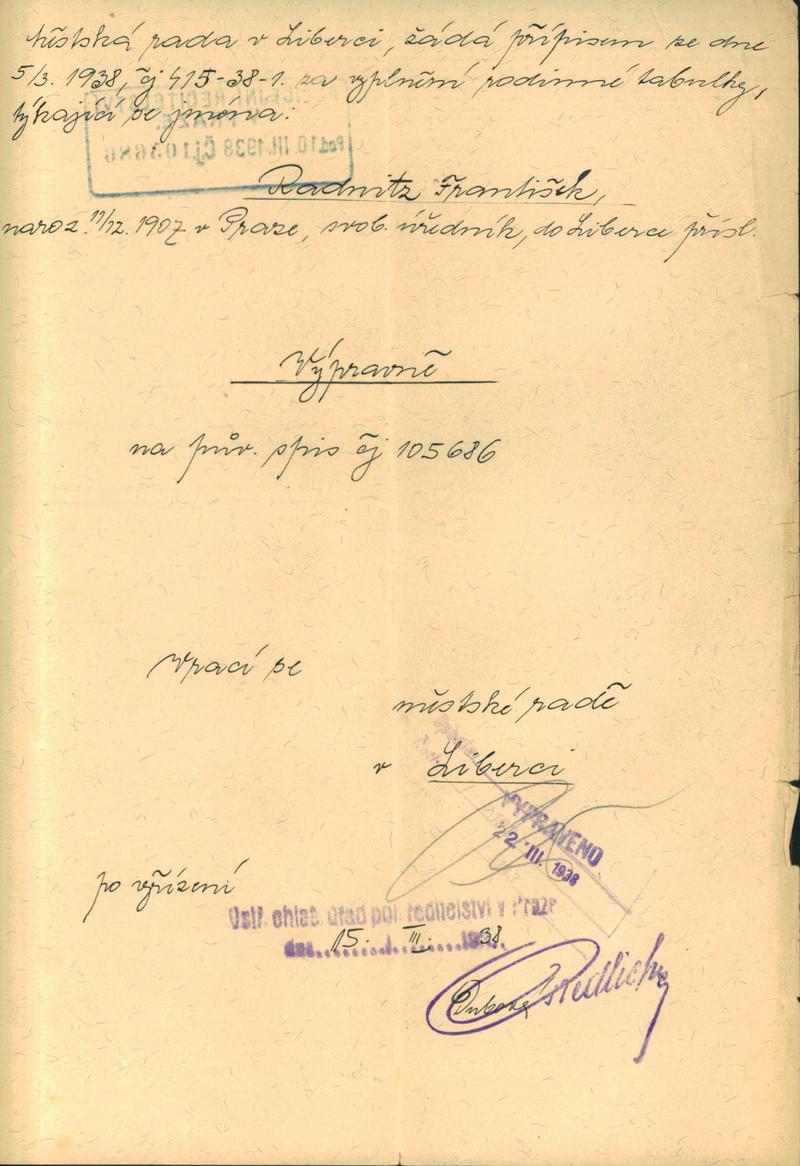 Městská rada v Liberci, žádá přípisem ze dne
5/3. 1938, čj 415-38-1. za vyplnění rodinné tabulky,
týkající se jména:
POLICEJNÍ ŘEDITELSTVÍ
V PRAZE
Pod 10. III. 1938 Čj 105686
Radnitz František,
naroz. 11/12. 1907 v Praze, svob. úředník, do Liberce přísl.
Výpravně
na pův. spis čj 105686
Vrací se
městské radě
v Liberci
VYPRAVENO
22. III. 1938
po vyřízení
Ústř. ohlaš. úřad pol. ředitelství v Praze
dne 15. III. 1938.